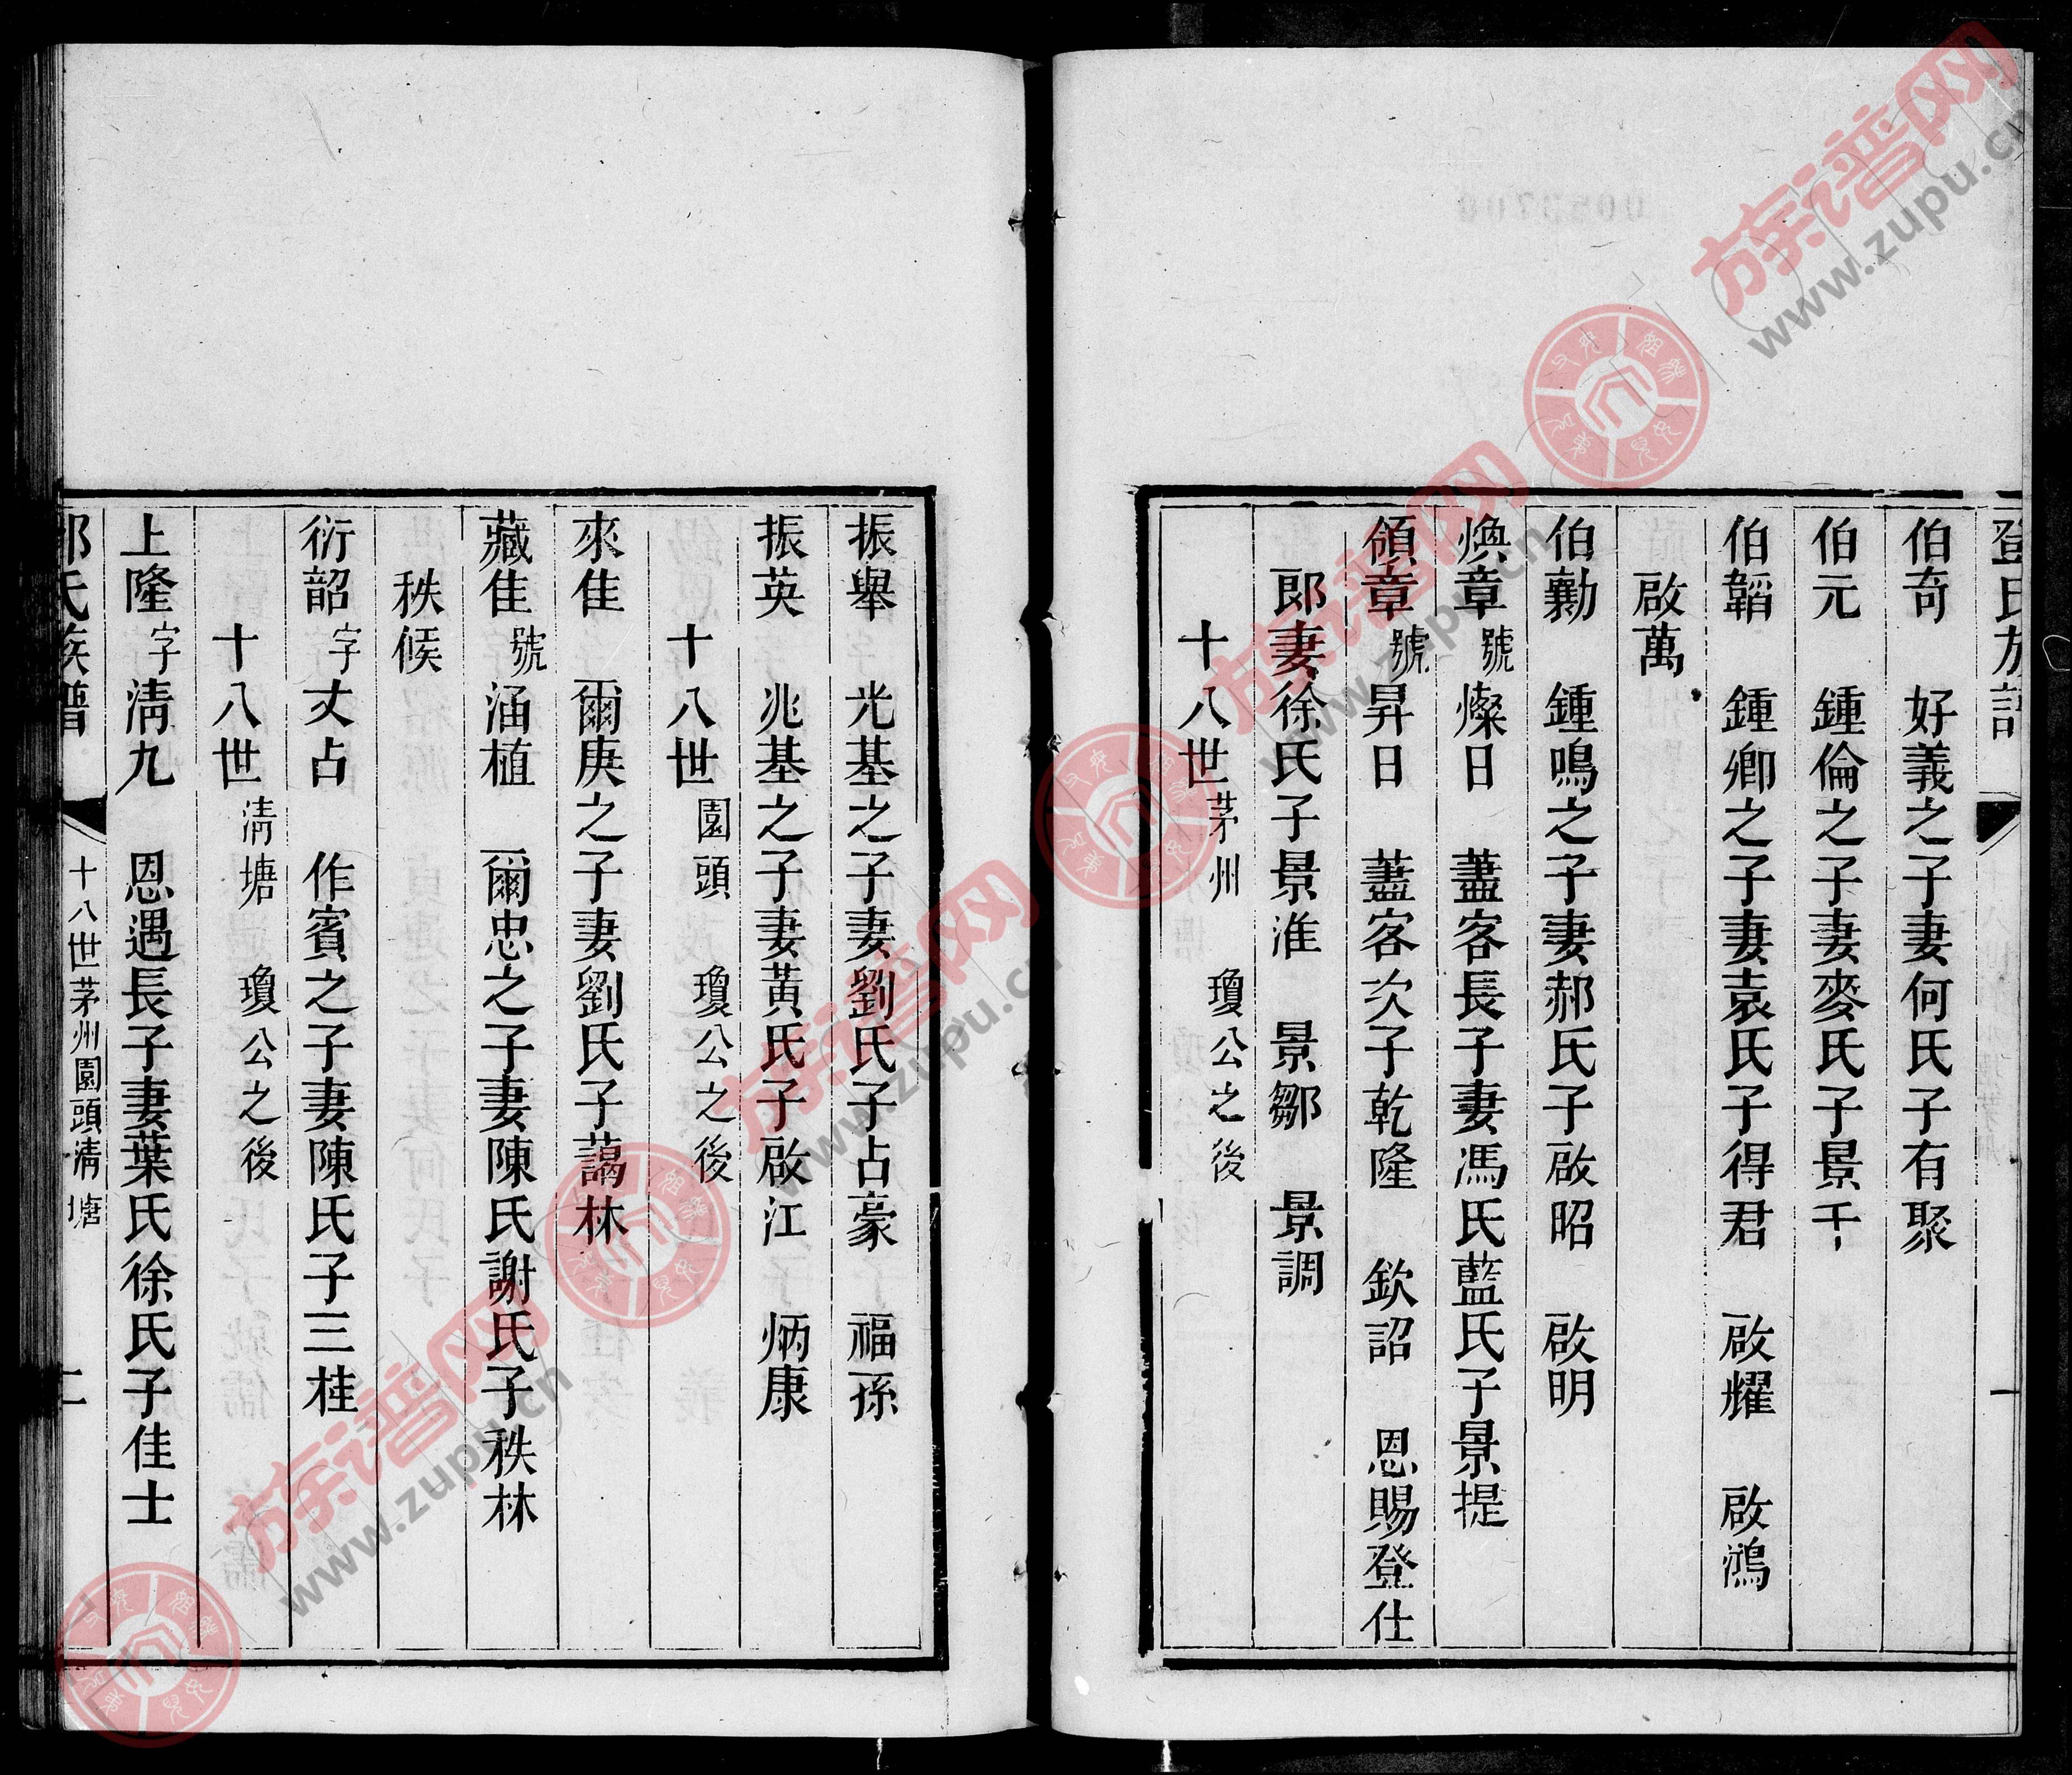 鄧氏族譜
一
伯奇　好義之子妻何氏子有聚
伯元　鍾倫之子妻麥氏子景千
伯韜　鍾卿之子妻袁氏子得君　啟耀　啟鴻
啟萬
伯勷　鍾鳴之子妻郝氏子啟昭　啟明
煥章號燦日　藎客長子妻馮氏藍氏子景提
領章號昇日　藎客次子乾隆　欽詔　恩賜登仕
郎妻徐氏子景淮　景鄒　景調
十八世茅州　瓊公之後
振舉　光基之子妻劉氏子占豪　福孫
振英　兆基之子妻黃氏子啟江　炳康
十八世園頭　瓊公之後
來佳　爾庚之子妻劉氏子藹林
藏佳號涵植　爾忠之子妻陳氏謝氏子秩林
秩候
衍韶字丈占　作賓之子妻陳氏子三桂
十八世清塘　瓊公之後
上隆字清九　恩遇長子妻葉氏徐氏子佳士
鄧氏族譜
十八世茅州園頭清塘
二
族谱网
www.zupu.cn
族谱网
www.zupu.cn
族谱网
www.zupu.cn
族谱网
www.zupu.cn